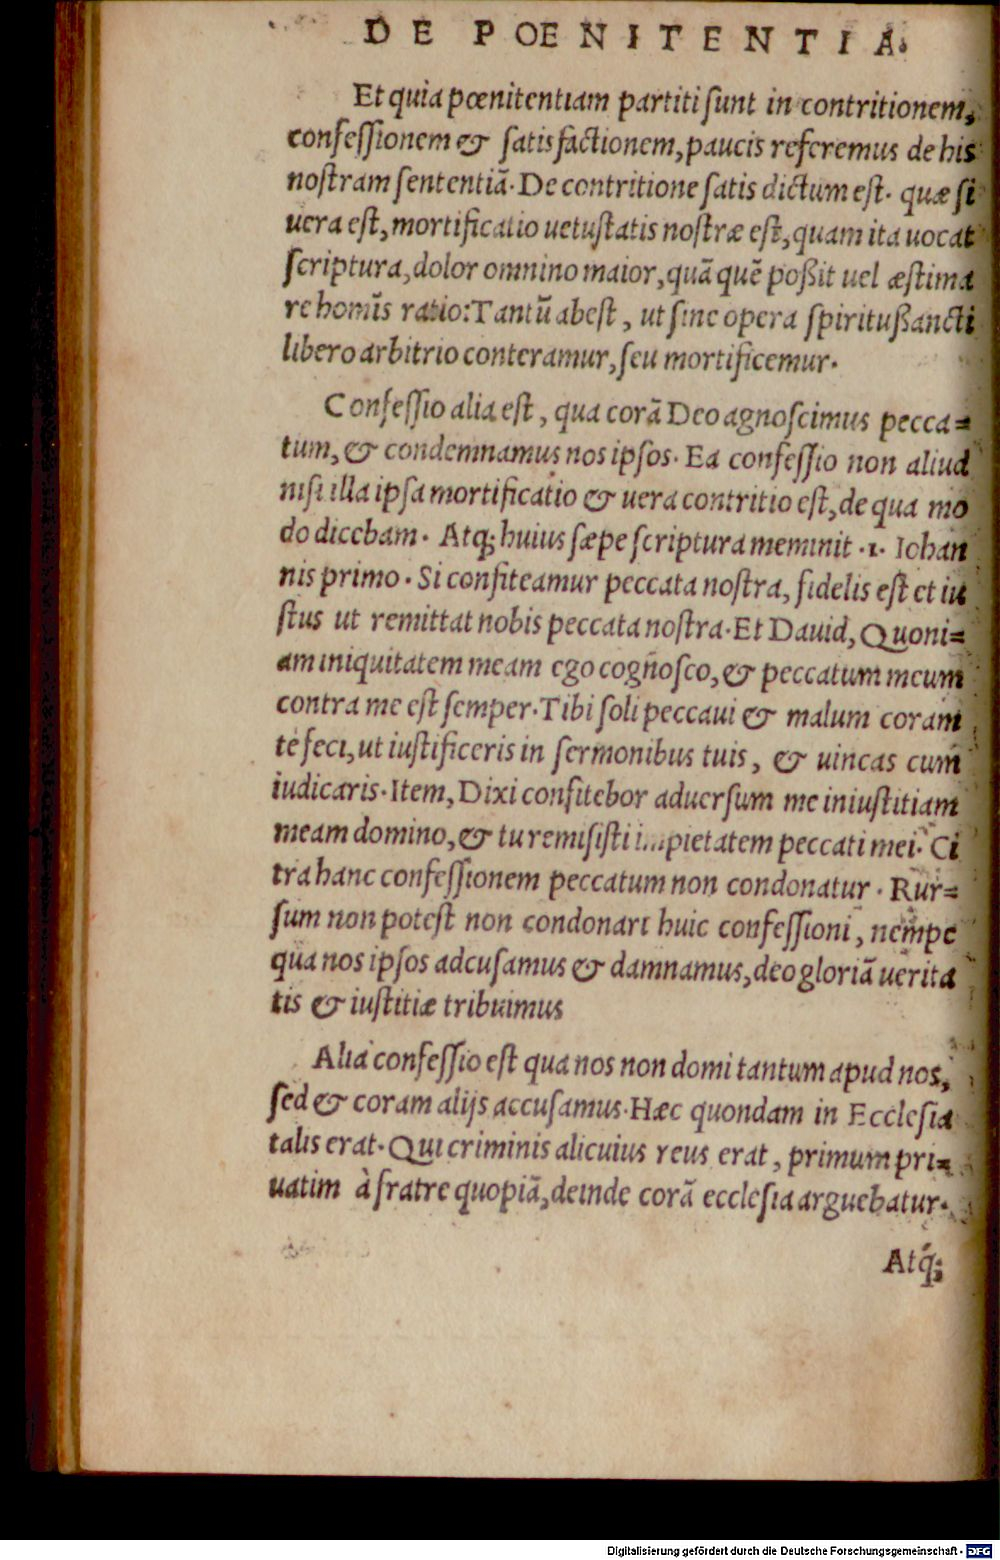 DE POENITENTIA.
Et quia pœnitentiam partiti sunt in contritionem,
confessionem & satisfactionem, paucis referemus de his
nostram sententiã. De contritione satis dictum est. quæ si
uera est, mortificatio uetustatis nostræ est, quam ita uocat
scriptura, dolor omnino maior, quã quẽ poßit uel æstima
re homĩs ratio: Tantũ abest, ut sine opera spiritußancti
libero arbitrio conteramur, seu mortificemur.
Confessio alia est, qua corã Deo agnoscimus pecca=
tum, & condemnamus nos ipsos. Ea confessio non aliud
nisi illa ipsa mortificatio & uera contritio est, de qua mo
do dicebam. Atq; huius sæpe scriptura meminit .1. Iohan
nis primo. Si confiteamur peccata nostra, fidelis est et iu
stus ut remittat nobis peccata nostra. Et Dauid, Quoni=
am iniquitatem meam ego cogñosco, & peccatum meum
contra me est semper. Tibi soli peccaui & malum coram
te feci, ut iustificeris in sermonibus tuis, & uincas cum
iudicaris. Item, Dixi confitebor aduersum me iniustitiam
meam domino, & tu remisisti impietatem peccati mei. Ci
tra hanc confessionem peccatum non condonatur. Rur=
sum non potest non condonari huic confessioni, nempe
qua nos ipsos adcusamus & damnamus, deo gloriã uerita
tis & iustitiæ tribuimus
Alia confessio est qua nos non domi tantum apud nos,
sed & coram alijs accusamus. Hæc quondam in Ecclesia
talis erat. Qui criminis alicuius reus erat, primum pri=
uatim à fratre quopiã, deinde corã ecclesia arguebatur.
Atq́;
Digitalisierung gefördert durch die Deutsche Forschungsgemeinschaft - DFG